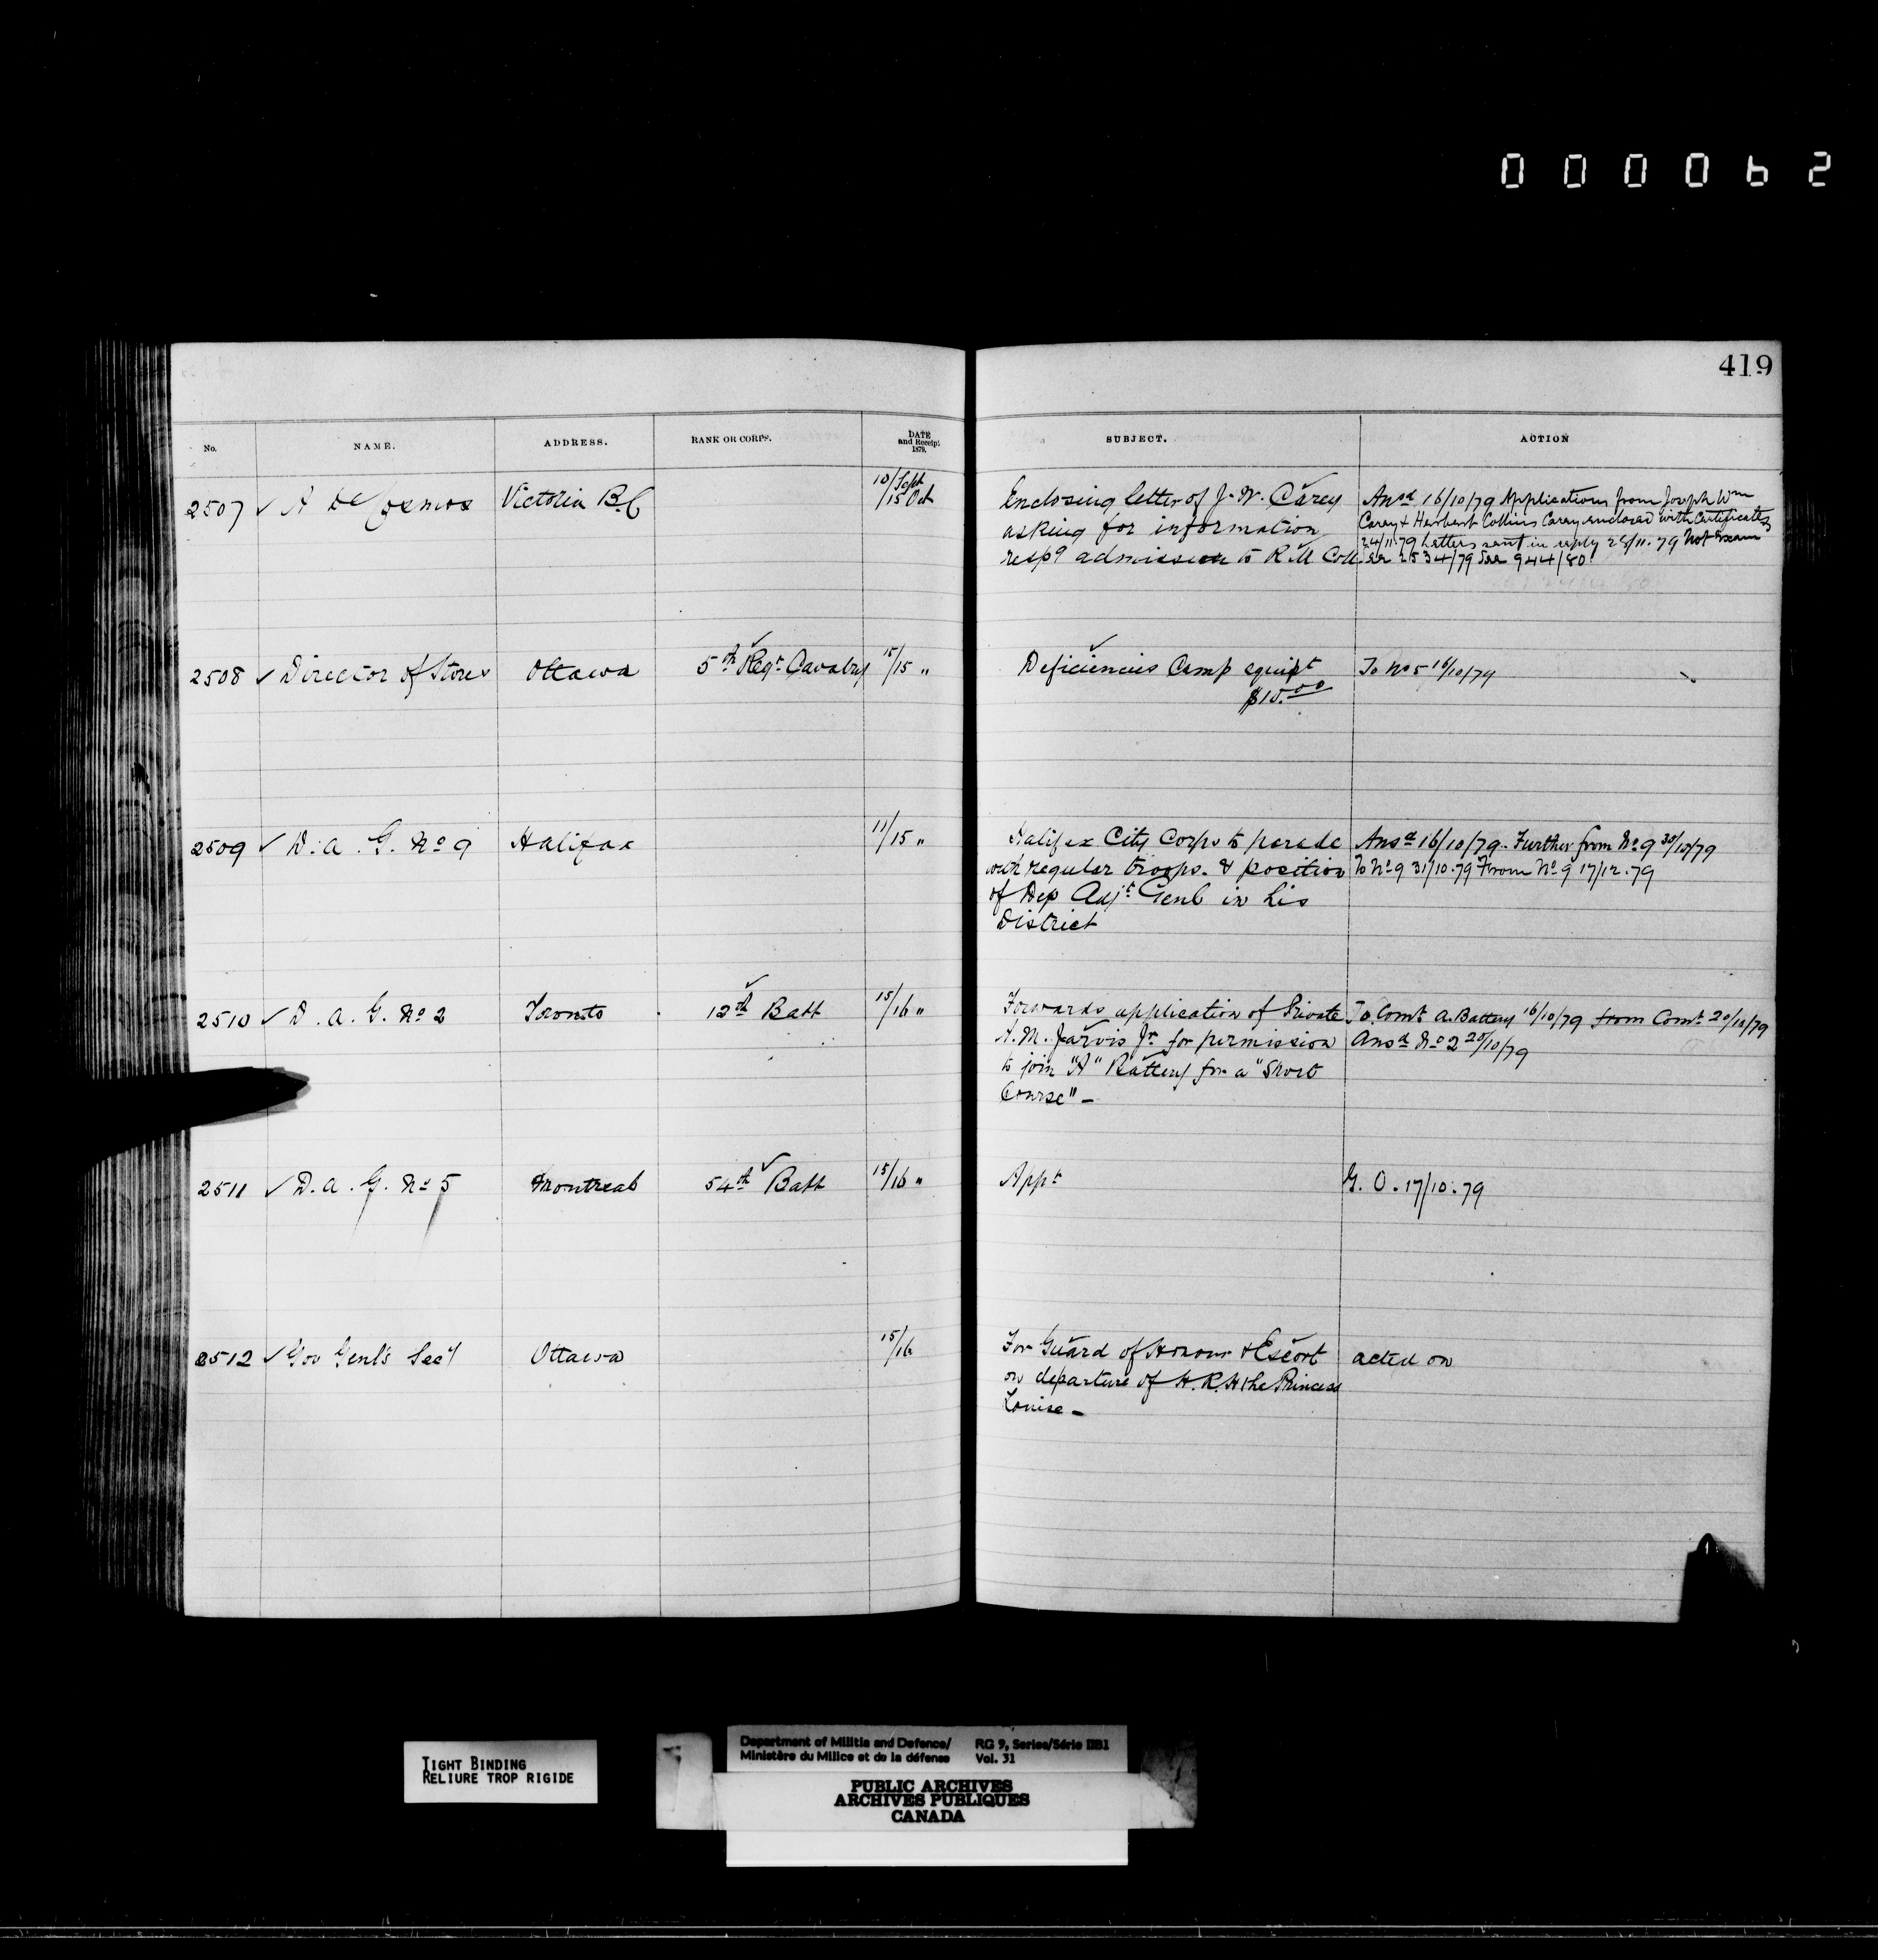 000062
419
No. NAME. ADDRESS. RANK OR CORPS. DATE and Receipt. 1879. SUBJECT. ACTION
2507 ✓ A De Cosmos Victoria B.C 10/Sept /15 Oct
Enclosing letter of J. W. Carey
asking for information
respg admission to R. M Coll.
Ansd 16/10/79 Applications from Joseph Wm
Carey + Herbert Collins Carey enclosed with Certificates
24/11.79 Letters sent in reply 28/11.79 Not Exam
See 2534/79 See 944/80
2508 ✓ Director of Stores Ottawa 5th Regt Cavalry 15/15 "
Deficiencies Camp equipt
$10.00
To No 5 16/10/79
2509 ✓ D. A. G. No 9 Halifax 11/15 "
Halifax City Corps to parade
with regular troops. & position
of Dep Adjt Genl in his
District
Ansd 16/10/79. Further from No 9 30/10/79
To No 9 31/10.79 From No 9 17/12.79
2510 ✓ D. A. G. No 2 Toronto 12th Batt 15/16 "
Forwards application of Private
A. M. Jarvis Jr. for permission
to join "A" Battery for a "Short
Course" —
To Comt A. Battery 16/10/79 from Comt 20/10/79
Ansd No 2 20/10/79
2511 ✓ D. A. G. No 5 Montreal 54th Batt 15/16 "
Appt
G. O. 17/10.79
2512 ✓ Gov Genl's Secy Ottawa 15/16
For Guard of Honour & Escort
on departure of H. R. H the Princess
Louise —
acted on
TIGHT BINDING
RELIURE TROP RIGIDE
Department of Militia and Defence/
Ministère du Milice et de la défense
RG 9, Series/Série IIB1
Vol. 31
PUBLIC ARCHIVES
ARCHIVES PUBLIQUES
CANADA